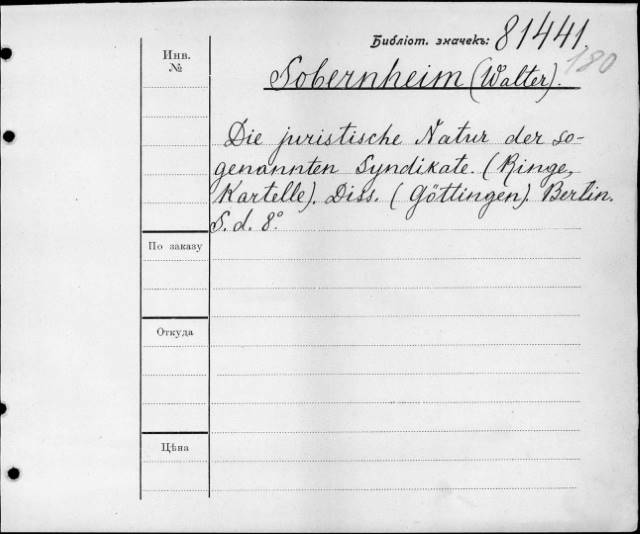 Библіот. значекъ: 81441.
180
Инв.
№
Sobernheim (Walter).
Die juristische Natur der so-
genannten Syndikate. (Ringe,
Kartelle). Diss. (Göttingen). Berlin.
S. d. 8°.
По заказу
Откуда
Цѣна